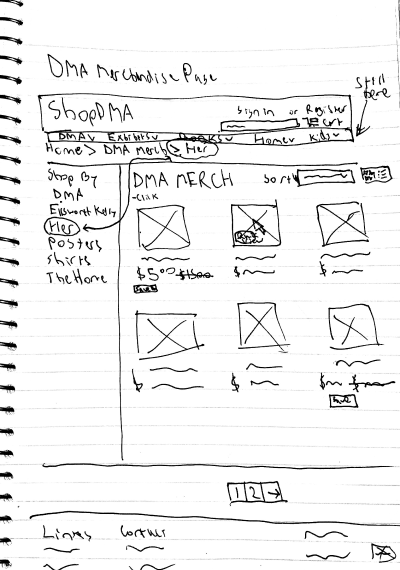 DMA Merchandise Page
Still here
ShopDMA
Sign In or Register
Cart
DMA Exhibits Books Home Kids
Home > DMA Merch > Her
Shop By
DMA
Ellsworth Kelly
Her
Posters
Shirts
The Home
DMA MERCH
Sort
$5.00 $15.00
Sale
$
$
$
$
$ $
Sale
1 2 →
Links Contact